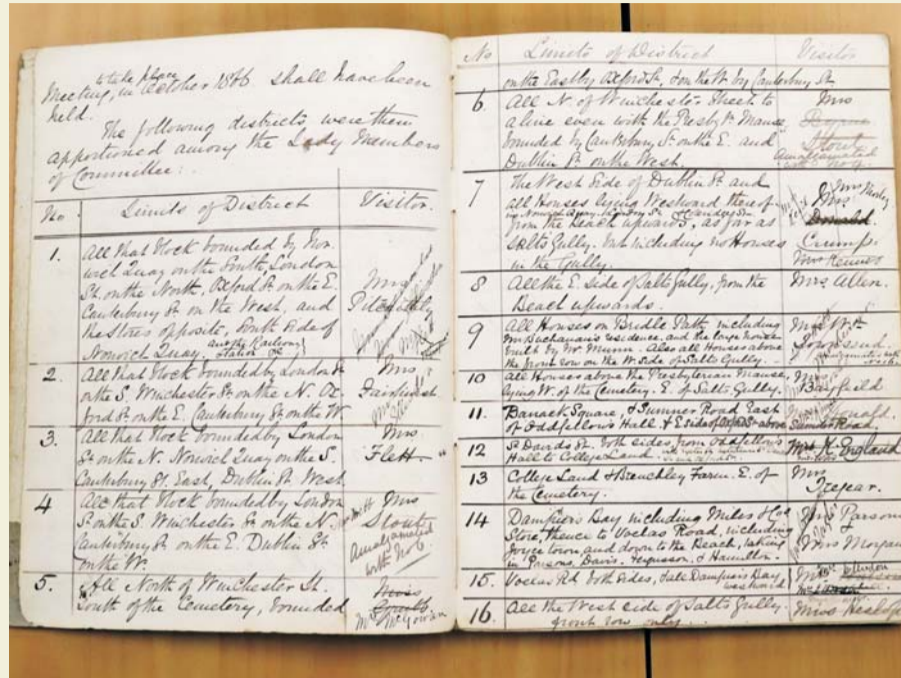 to take place
Meeting, in October 1866 shall have been
held.
The following districts were then
apportioned among the Lady Members
of Committee:
No Limits of District Visitor.
1. All that Block bounded by Nor-
wich Quay on the South, London
St. on the North, Oxford St. on the E.
Canterbury St. on the West, and
the Stores opposite, South side of
Norwich Quay. and the Railway
Station &c
Mrs
2. All that Block bounded by London St
on the S. Winchester St. on the N. Ox-
ford St. on the E. Canterbury St. on the W.
Mrs
3. All that Block bounded by London
St. on the N. Norwich Quay on the S.
Canterbury St. East, Dublin St. West
Mrs
Flett
4 All that Block bounded by London
St. on the S. Winchester St. on the N.
Canterbury St. on the E. Dublin St.
on the W.
Mrs
Stout
Amalgamated
with No 6
5. All North of Winchester St.
South of the Cemetery, bounded
McGowan
No Limits of District Visitor
on the East by Oxford St. & on the W. by Canterbury St.
6. All N. of Winchester Street to
a line even with the Presbyn. Manse,
bounded by Canterbury St. on the E. and
Dublin St. on the West.
Mrs
Stout
Amalgamated
with No 4.
7 The West Side of Dublin St. and
all Houses lying Westward thereof
from the Beach upwards, as far as
Salts Gully. but including no Houses
in the Gully.
Mrs
Donald
Crump.
8 All the E. side of Salts Gully, from the
Beach upwards.
Mrs Allen.
9 All Houses on Bridle Path including
Mr Buchanan's residence, and the large house
built by Mr. Munn. Also all Houses above
the front row on the W. Side of Salts Gully.
Townsend
10 All Houses above the Presbyterian Manse,
lying W. of the Cemetery. E. of Salts Gully.
Bayfield
11. Barrack Square, & Sumner Road East
of Oddfellow's Hall. & E side of Oxford St above
Sumner Road.
Donald.
12 St. Davids St. both sides, from Oddfellow's
Hall to College Land.
Mrs H. England
13 College Land & Brenchley Farm. E. of
the Cemetery.
Mrs
Tregear.
14 Dampiers Bay including Miles & Co's
Store, thence to Voelas Road, including
Joyce town, and down to the Beach, taking
in Parsons, Davis, Fergusson, & Hamilton.
Mrs Parsons
Miss Morgan
15. Voelas Rd both sides, & all Dampiers Bay,
westward
16 All the West side of Salts Gully.
front row only.
Miss Heslop